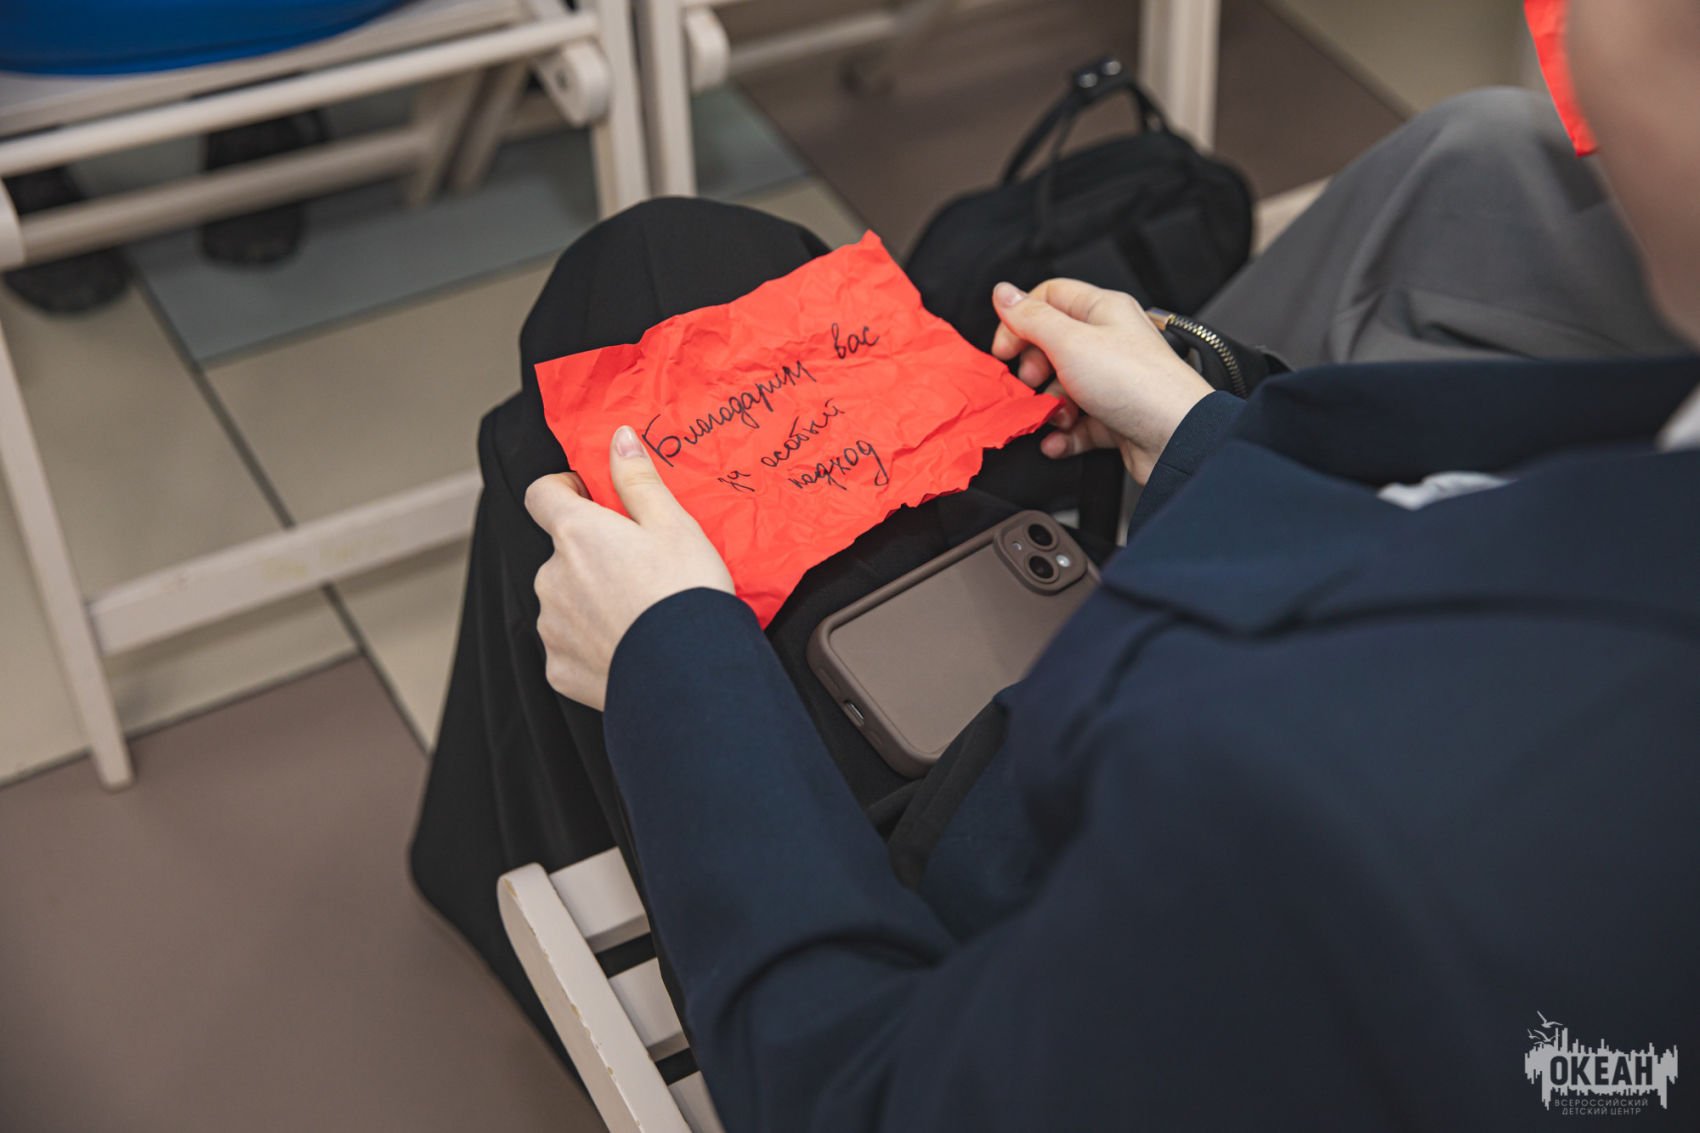 Благодарим вас
за особый
подход
ОКЕАН
ВСЕРОССИЙСКИЙ
ДЕТСКИЙ ЦЕНТР